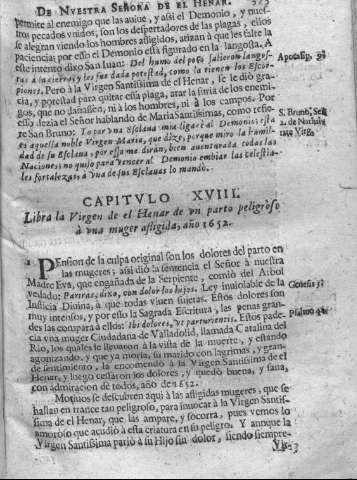 DE NVESTRA SEÑORA DE EL HENAR.
permite al enemigo que las auiue, y assi el Demonio, y nues-
tros pecados vnidos, son los despertadores de las plagas, ellos
se alegran viendo los hombres afligidos, quitan à que les falte la
paciencia; por esso el Demonio està figurado en la langosta. A
este intento dixo San Iuan: Del humo del poço salieron langos-
tas à la tierra, y les fue dada potestad, como la tienen los Escor-
piones. Pero à la Virgen Santissima de el Henar, se le diò gra-
cia, y potestad para quitar esta plaga, atar la furia de los enemi-
gos, que no dañassen, ni à los hombres, ni à los campos. Por
esso dezia el Señor hablando de Maria Santissima, como refie-
re San Bruno: Yo por vna Esclaua mia ligarè al Demonio; esta
es aquella noble Virgen Maria, que dize, porque miro la humil-
dad de su Esclaua, por essa me diràn, bien auenturada todas las
Naciones; no quiso para vencer al Demonio embiar las celestia-
les fortalezas, à vna de sus Esclauas lo mandò.
Apocalip. 9.
S. Bruno, Ser.
2. de Natiuit.
Virg.
CAPITVLO XVIII.
Libra la Virgen de el Henar de vn parto peligroso
à vna muger afligida, año 1652.
PEnsion de la culpa original son los dolores del parto en
las mugeres; assi diò la sentencia el Señor à nuestra
Madre Eva, que engañada de la Serpiente, comiò del Arbol
vedado: Pariras, dixo, con dolor los hijos. Ley inuiolable de la
Iusticia Diuina, à que todas viuen sujetas. Estos dolores son
muy intensos, y por esso la Sagrada Escritura, las penas gran-
des las compara à ellos: Ibi dolores, vt parturientis. Estos pade-
cia vna muger Ciudadana de Valladolid, llamada Catalina del
Rio, los quales le llegaron à la vista de la muerte, y estando
agonizando, y que ya moria, su marido con lagrimas, y gran-
de sentimiento, la encomendò à la Virgen Santissima de el
Henar, y luego cessaron los dolores, y quedò buena, y sana,
con admiracion de todos, año de 1652.
Genesis 3.
Psalmo 47.
Motiuos se descubren aqui à las afligidas mugeres, que se
hallan en trance tan peligroso, para inuocar à la Virgen Santis-
sima de el Henar, que las ampare, y socorra, pues vemos lo
amoroso que acudiò à esta criatura en su peligro. Y aunque la
Virgen Santissima pariò à su Hijo sin dolor, siendo siempre
Vir-